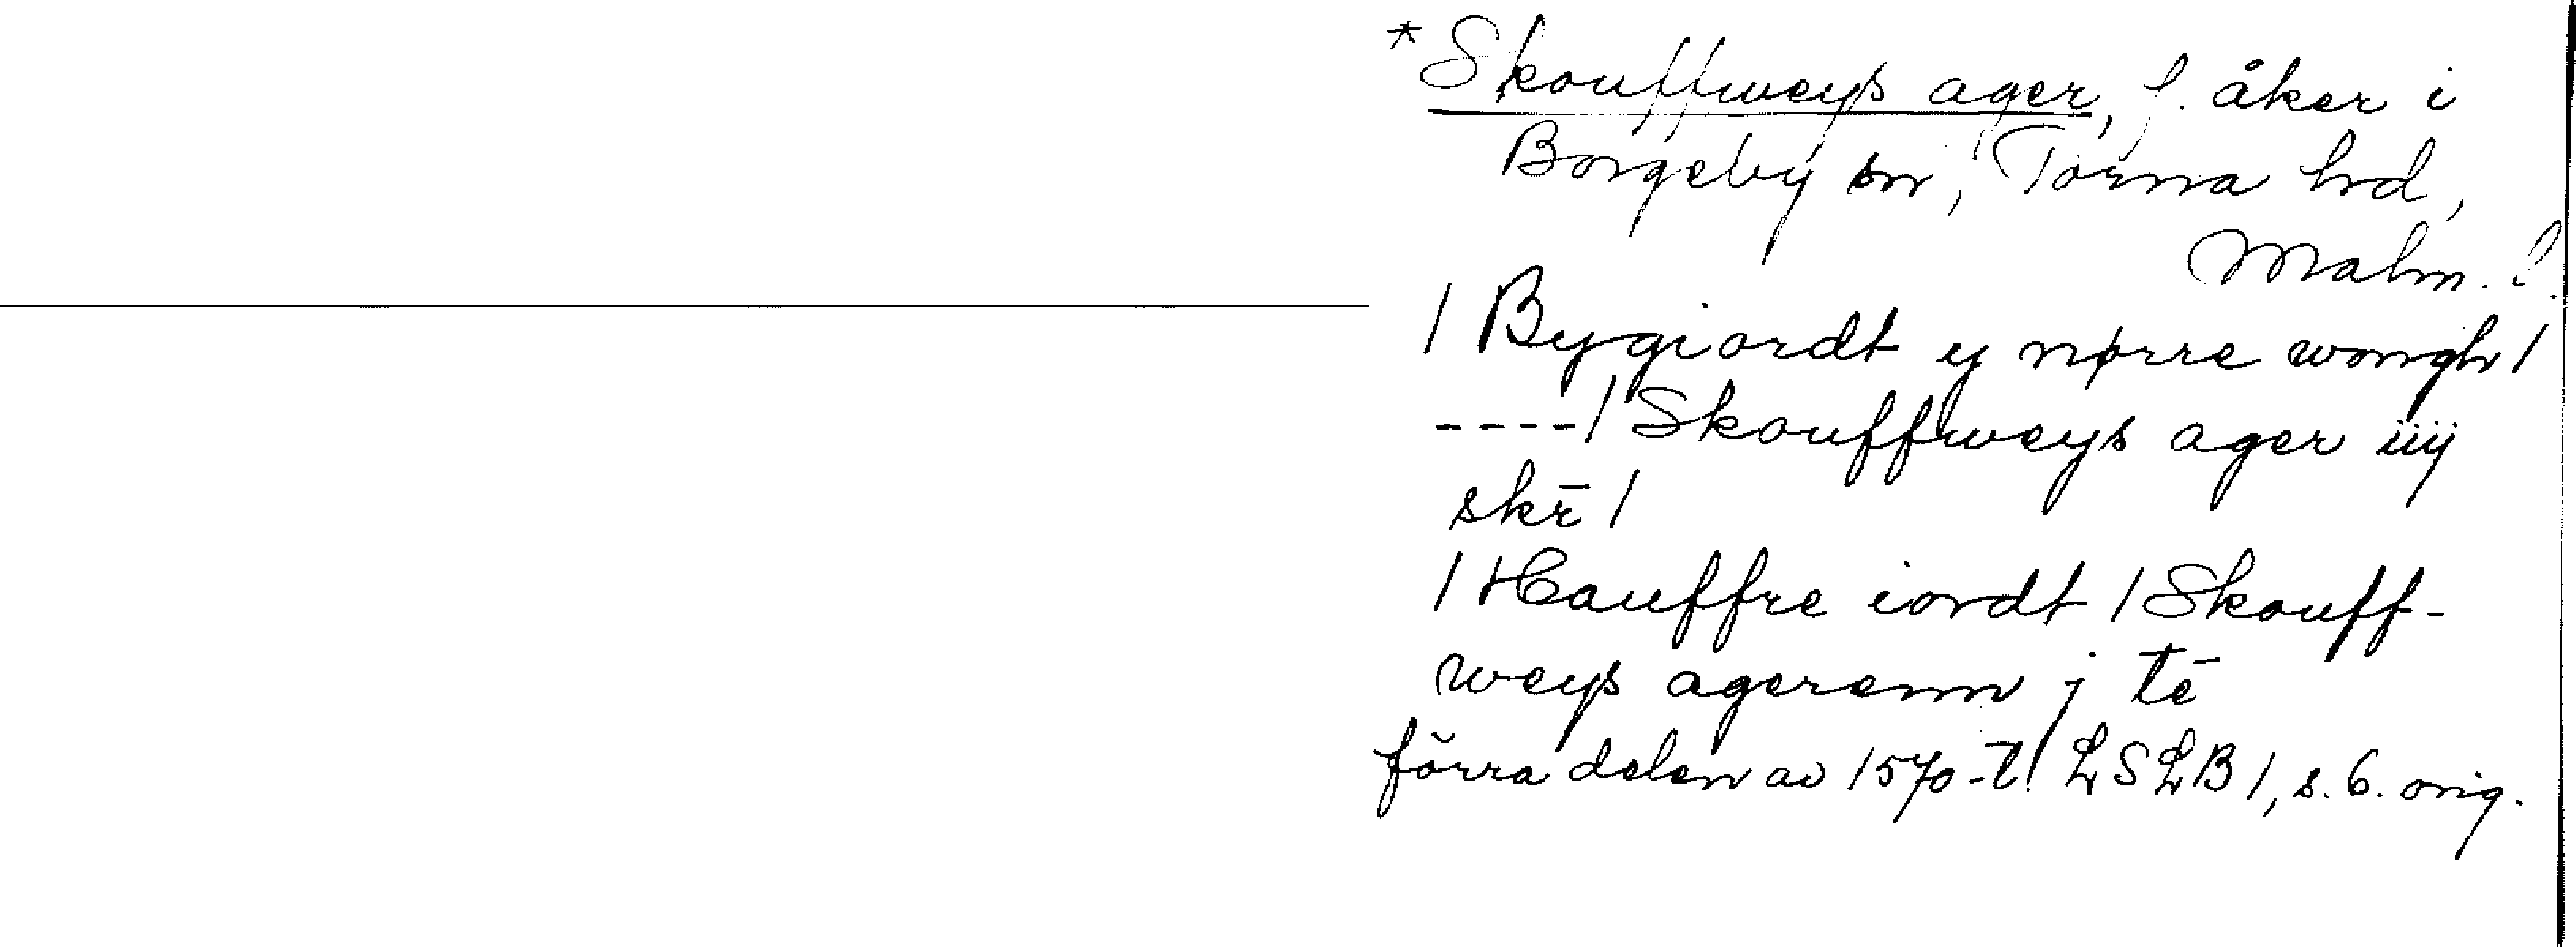 * Skouffweys ager, f. åker i
Borgeby sn, Torna hd,
Malm. l.
/ Bygiordt y nørre wongh /
----/ Skouffweys ager iiij
skr̄ /
/ Hauffre iordt / Skouff-
weys agerenn j tē
förra delen av 1570-t. LSLB 1, s. 6. orig.